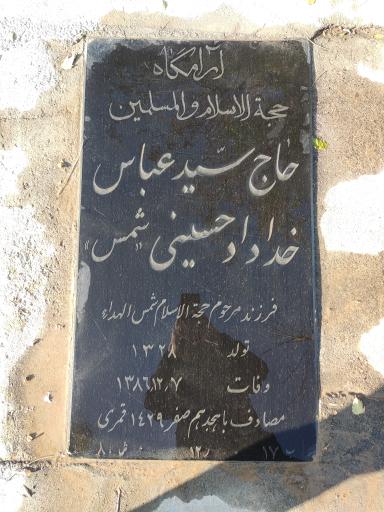 آرامگاه
حجة الاسلام و المسلمین
حاج سید عباس
خداداد حسینی "شمس"
فرزند مرحوم حجة الاسلام شمس الهداء
تولد
۱۳۲۸
وفات ۱۳۸۶/۱۲/۷
مصادف با هجدهم صفر ۱۴۲۹ قمری